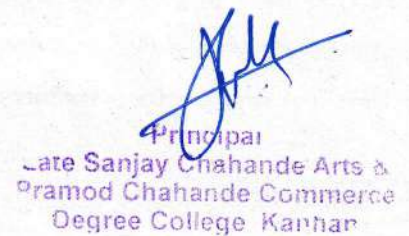 Principal
Late Sanjay Chahande Arts &
Pramod Chahande Commerce
Degree College Kanhan